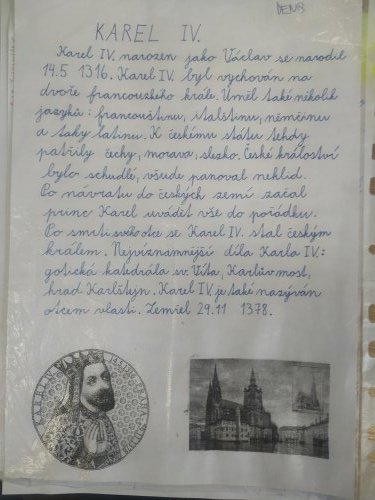 DENB
KAREL IV.
Karel IV. narozen jako Václav se narodil
14.5 1316. Karel IV. byl vychován na
dvoře francouzkého krále. Uměl také několik
jazyků: francouštinu, italštinu, němčinu
a taky latinu. K českému státu tehdy
patřily čechy, morava, slezko. České království
bylo schudlé, všude panoval neklid.
Po návratu do českých zemí začal
princ Karel uvádět vše do pořádku.
Po smrti svého otce se Karel IV. stal českým
králem. Nejvíznamnější díla Karla IV.:
gotická katedrála sv. Víta, Karlův most,
hrad Karlštejn. Karel IV. je také nazýván
otcem vlasti. Zemřel 29.11 1378.